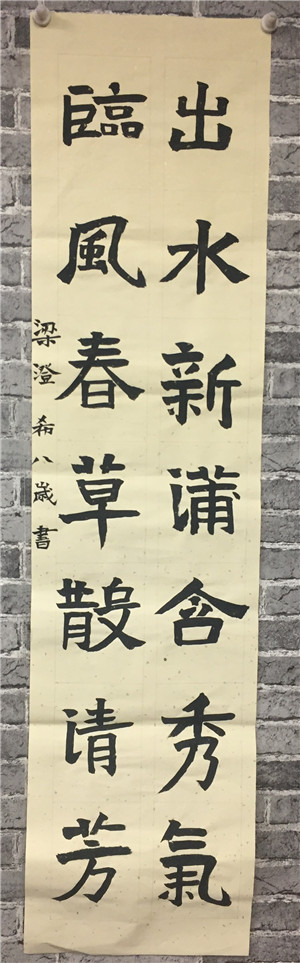 出水新蒲含秀氣
臨風春草散清芳
梁澄希八歲書